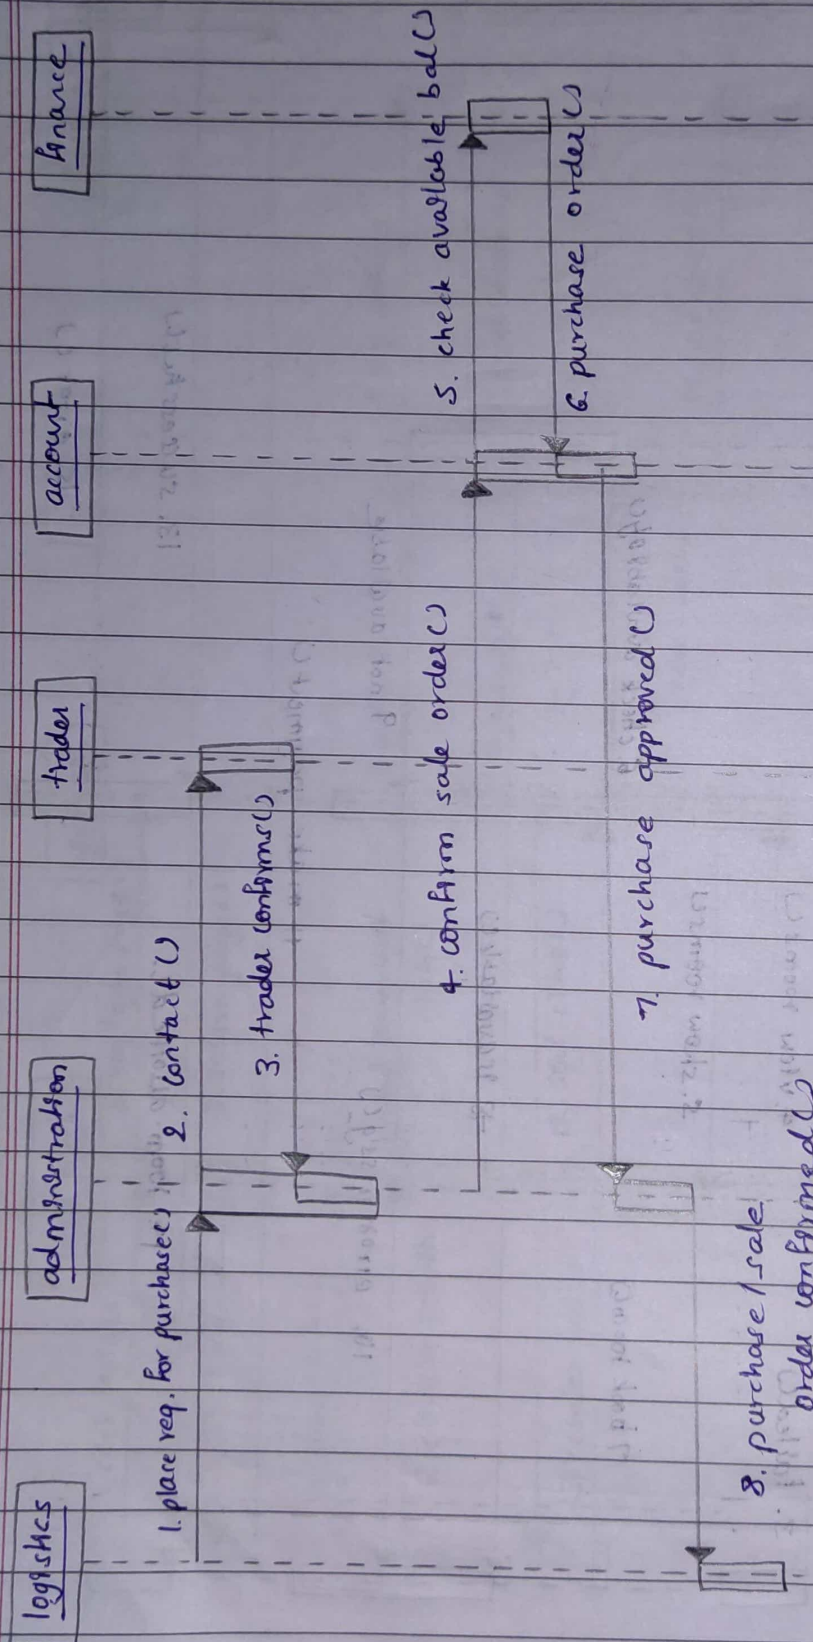 logistics
administration
trader
account
finance
1. place req. for purchase()
2. contact ()
3. trader confirms()
4. confirm sale order()
5. check available bal()
6. purchase order()
7. purchase approved()
8. purchase / sale
order confirmed()